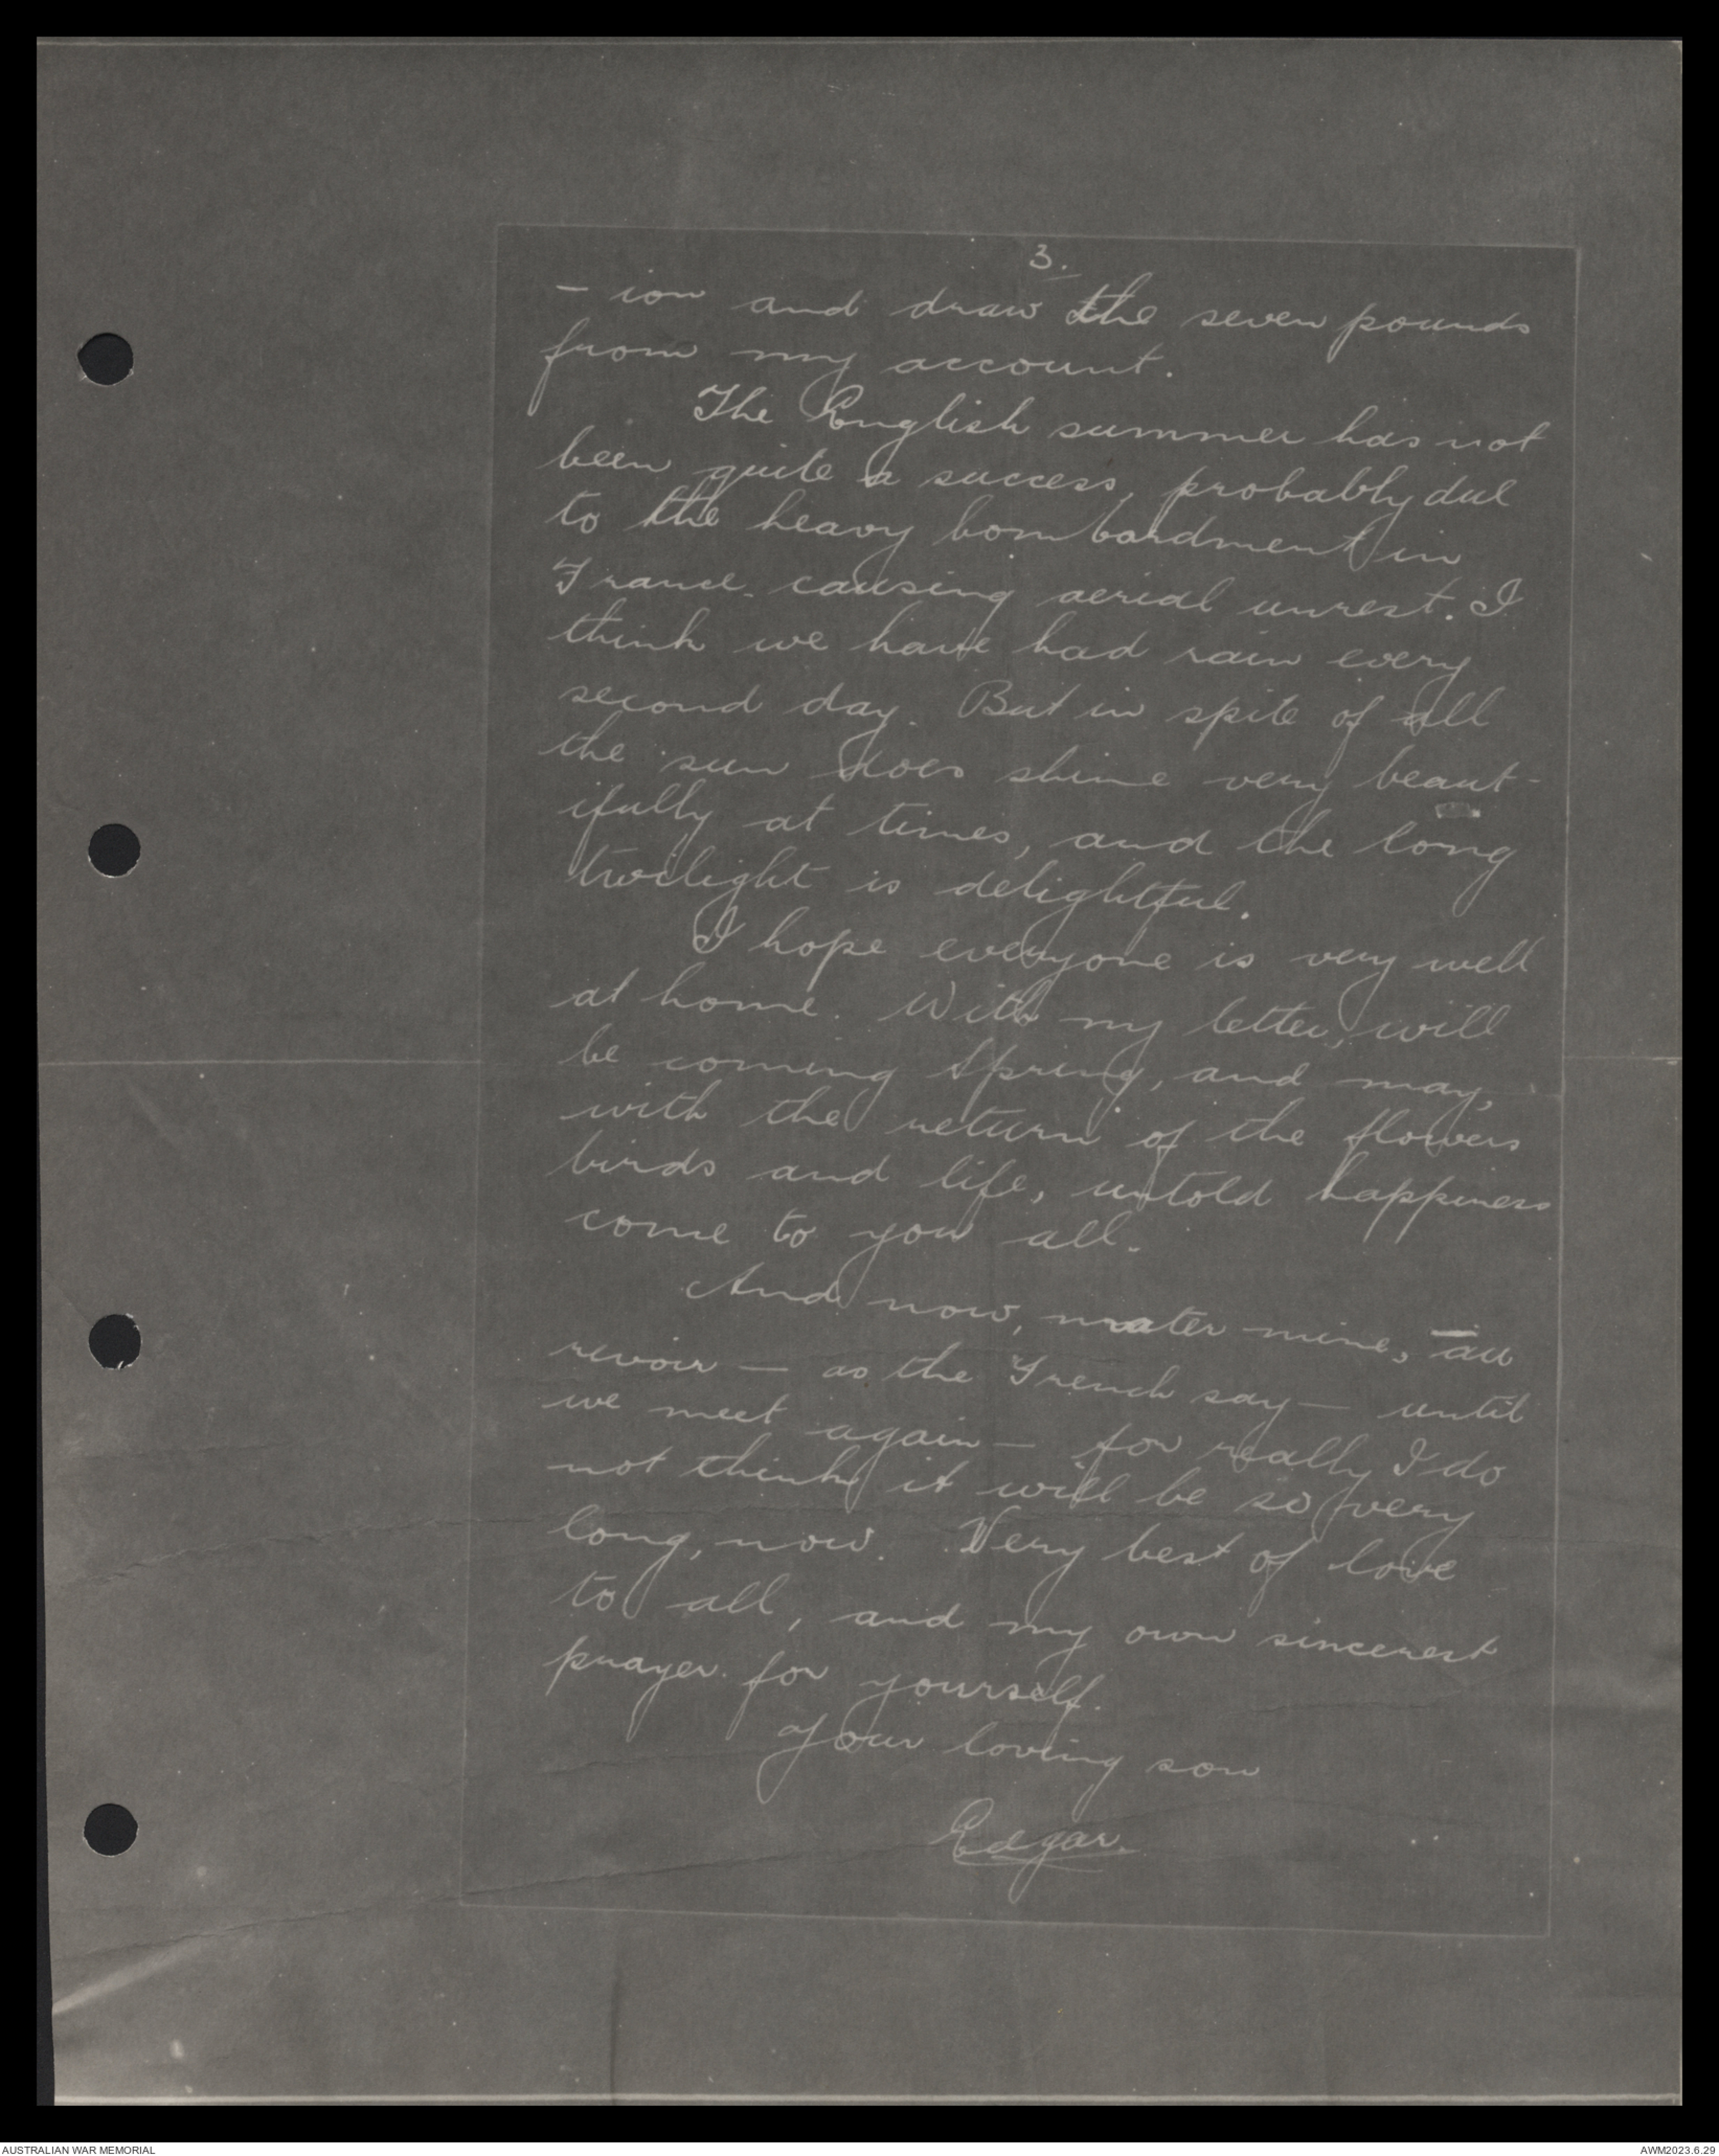 3.
- ion and draw the seven pounds
from my account.
The English summer has not
been quite a success, probably due
to the heavy bombardment in
France causing aerial unrest. I
think we have had rain every
second day. But in spite of all
the sun does shine very beaut-
ifully at times, and the long
twilight is delightful.
I hope everyone is very well
at home. With my letter, will
be coming Spring, and may,
with the return of the flowers
birds and life, untold happiness
come to you all.
And now, mater mine, - au
revoir - as the French say - until
we meet again - for really I do
not think it will be so very
long, now. Very best of love
to all, and my own sincerest
prayer for yourself.
Your loving son
Edgar.
AUSTRALIAN WAR MEMORIAL
AWM2023.6.29